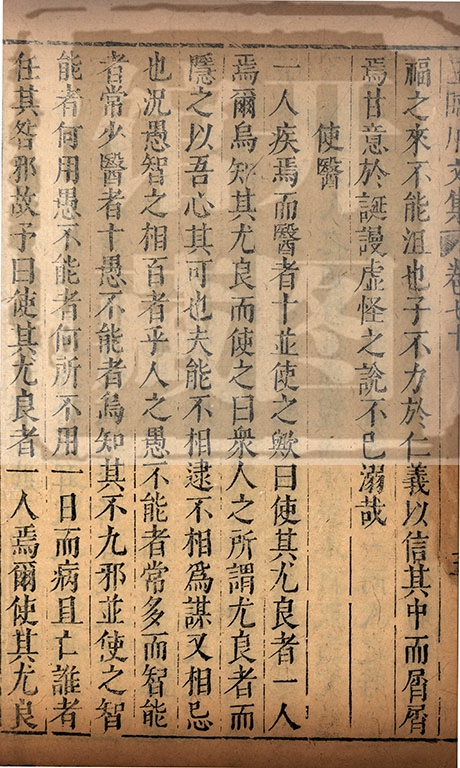 王臨川文集 卷七十
福之來不能沮也子不力於仁義以信其中而屑屑
焉甘意於誕謾虛怪之說不已溺哉
使醫
一人疾焉而醫者十並使之歟曰使其尤良者一人
焉爾烏知其尤良而使之曰衆人之所謂尤良者而
隱之以吾心其可也夫能不相逮不相爲謀又相忌
也況愚智之相百者乎人之愚不能者常多而智能
者常少醫者十愚不能者烏知其不九邪並使之智
能者何用愚不能者何所不用一日而病且亡誰者
任其咎邪故予曰使其尤良者一人焉爾使其尤良